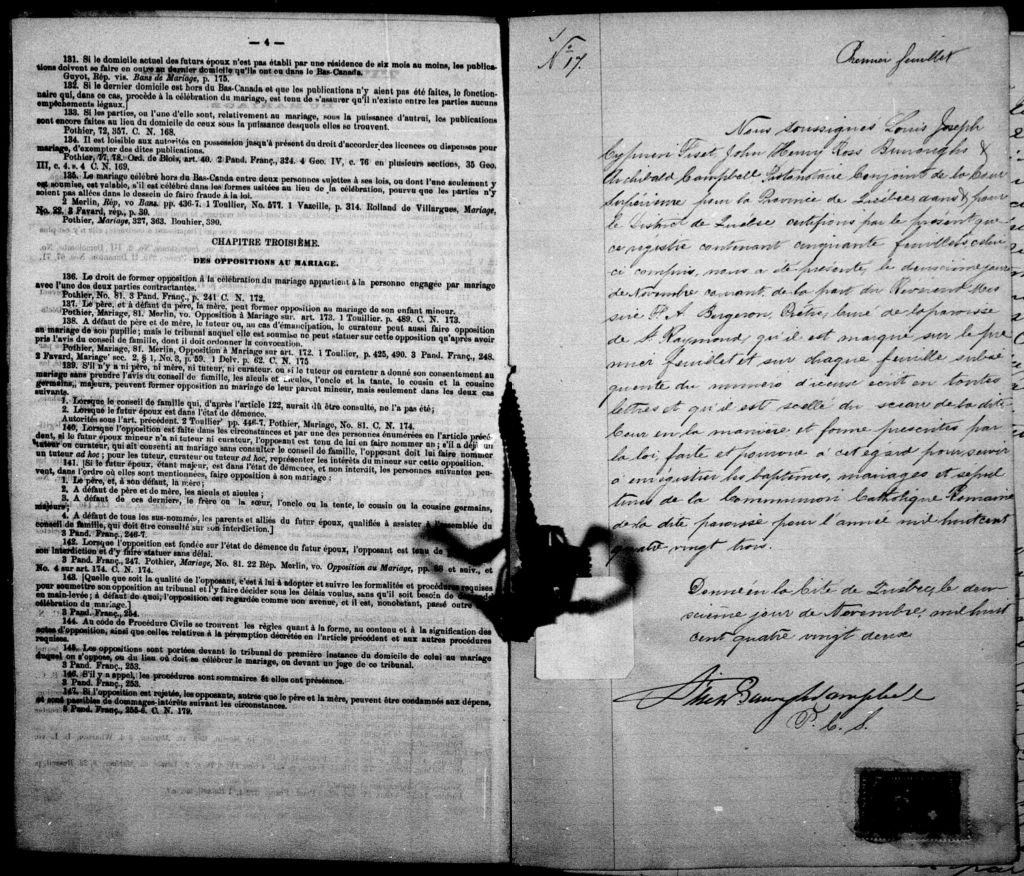 — 4 —
131. Si le domicile actuel des futurs époux n'est pas établi par une résidence de six mois au moins, les publica-
tions doivent se faire en outre au dernier domicile qu'ils ont eu dans le Bas-Canada.
Guyot, Rép. vis. Bans de Mariage, p. 175.
132. Si le dernier domicile est hors du Bas-Canada et que les publications n'y aient pas été faites, le fonction-
naire qui, dans ce cas, procède à la célébration du mariage, est tenu de s'assurer qu'il n'existe entre les parties aucuns
empêchements légaux.]
133. Si les parties, ou l'une d'elle sont, relativement au mariage, sous la puissance d'autrui, les publications
sont encore faites au lieu du domicile de ceux sous la puissance desquels elles se trouvent.
Pothier, 72, 357. C. N. 168.
134. Il est loisible aux autorités en possession jusqu'à présent du droit d'accorder des licences ou dispenses pour
mariage, d'exempter des dites publications.
Pothier, 77, 78. Ord. de Blois, art. 40. 2 Pand. Franç., 324. 4 Geo. IV, c. 76 en plusieurs sections, 35 Geo.
III, c. 4. s. 4 C. N. 169.
135. Le mariage célébré hors du Bas-Canda entre deux personnes sujettes à ses lois, ou dont l'une seulement y
est soumise, est valable, s'il est célébré dans les formes usitées au lieu de la célébration, pourvu que les parties n'y
soient pas allées dans le dessein de faire fraude à la loi.
2 Merlin, Rép, vo Bans. pp. 436-7. 1 Toullier, No. 577. 1 Vazeille, p. 314. Rolland de Villargues, Mariage,
No. 22. 3 Favard, rép., p. 30.
Pothier, Mariage, 327, 363. Bouhier, 390.
CHAPITRE TROISIÈME.
DES OPPOSITIONS AU MARIAGE.
136. Le droit de former opposition à la célébration du mariage appartient à la personne engagée par mariage
avec l'une des deux parties contractantes.
Pothier, No. 81. 3 Pand. Franç., p. 241 C. N. 172.
137. Le père, et à défaut du père, la mère, peut former opposition au mariage de son enfant mineur.
Pothier, Mariage, 81. Merlin, vo. Opposition à Mariage sur. art. 173. 1 Toullier. p. 489. C. N. 173.
138. A défaut de père et de mère, le tuteur ou, au cas d'émancipation, le curateur peut aussi faire opposition
au mariage de son pupille; mais le tribunal auquel elle est soumise ne peut statuer sur cette opposition qu'après avoir
pris l'avis du conseil de famille, dont il doit ordonner la convocation.
Pothier, Mariage, 81. Merlin, Opposition à Mariage sur art. 172. 1 Toullier, p. 425, 490. 3 Pand. Franç., 248.
2 Favard, Mariage' sec. 2, § 1, No. 3, p. 59. 1 Delv. p. 62. C. N. 175
139. S'il n'y a ni père, ni mère, ni tuteur, ni curateur. ou si le tuteur ou curateur a donné son consentement au
mariage sans prendre l'avis du conseil de famille, les aïeuls et aïeules, l'oncle et la tante, le cousin et la cousine
germains, majeurs, peuvent former opposition au mariage de leur parent mineur, mais seulement dans les deux cas
suivants.
1. Lorsque le conseil de famille qui, d'après l'article 122, aurait dû être consulté, ne l'a pas été;
2. Lorsque le futur époux est dans l'état de démence.
Autorités sous l'art. précédent. 2 Toullier' pp. 446-7. Pothier, Mariage, No. 81. C. N. 174.
140. Lorsque l'opposition est faite dans les circonstances et par une des personnes énumérées en l'article précé-
dent, si le futur époux mineur n'a ni tuteur ni curateur, l'opposant est tenu de lui en faire nommer un; s'il a déjà un
tuteur ou curateur, qui ait consenti au mariage sans consulter le conseil de famille, l'opposant doit lui faire nommer
un tuteur ad hoc; pour les tuteur, curateur ou tuteur ad hoc, représenter les intérêts du mineur sur cette opposition.
141. [Si le futur époux, étant majeur, est dans l'état de démence, et non interdit, les personnes suivantes peu-
vent, dans l'ordre où elles sont mentionnées, faire opposition à son mariage:
1. Le père, et, à son défaut, la mère;
2. A défaut de père et de mère, les aïeuls et aïeules;
3. A défaut de ces dernière, le frère ou la sœur, l'oncle ou la tante, le cousin ou la cousine germains,
majeurs;
4. A défaut de tous les sus-nommés, les parents et alliés du futur époux, qualifiés à assister à l'assemblée du
conseil de famille, qui doit être consulté sur son interdiction.]
3 Pand. Franç., 246-7.
142. Lorsque l'opposition est fondée sur l'état de démence du futur époux, l'opposant est tenu de
son interdiction et d'y faire statuer sans délai.
3 Pand. Franç., 247. Pothier, Mariage, No. 81. 22 Rép. Merlin, vo. Opposition au Mariage, pp. et suiv., et
No. 4 sur art. 174. C. N. 174.
143. [Quelle que soit la qualité de l'opposant, c'est à lui à adopter et suivre les formalités et procédures requises
pour soumettre son opposition au tribunal et l'y faire décider sous les délais voulus, sans qu'il soit besoin de
en main-levée; à défaut de quoi, l'opposition est regardée comme non avenue, et il est, nonobstant, passé outre
célébration du mariage.]
3 Pand. Franç., 254.
144. Au code de Procédure Civile se trouvent les règles quant à la forme, au contenu et à la signification des
actes d'opposition, ainsi que celles relatives à la péremption décrétée en l'article précédent et aux autres procédures
requises.
145. Les oppositions sont portées devant le tribunal de première instance du domicile de celui au mariage
duquel on s'oppose, ou du lieu où doit se célébrer le mariage, ou devant un juge de ce tribunal.
3 Pand. Franç., 253.
146. S'il y a appel, les procédures sont sommaires et elles ont préséance.
3 Pand. Franç., 253.
147. Si l'opposition est rejetée, les opposants, autres que le père et la mère, peuvent être condamnés aux dépens,
et sont passibles de dommages-intérêts suivant les circonstances.
3 Pand. Franç., 255-6. C. N. 179.
No 17
Premier feuillet
Nous soussignés Louis Joseph
Cyprien Fiset John Henri Ross Burroughs &
Archibald Campbell Protonotaire Conjoint de la Cour
Supérieure pour la Province de Québec dans & pour
le District de Québec certifions par le présent que
ce registre contenant cinquante feuillets celui
ci compris, nous a été présenté, le deuxième jour
de Novembre courant, de la part du Révérend Mes
sire F. A. Bergeron, Prêtre, Curé de la paroisse
de St. Raymond, qu'il est marqué sur le pre
mier feuillet et sur chaque feuille subsé
quente du numéro d'icelle écrit en toutes
lettres et qu'il est scellé du sceau de la dite
Cour en la manière et forme prescrites par
la loi, faite et pourvue à cet égard pour servir
à enregistrer les baptêmes, mariages et sépul
tures de la Communion Catholique Romaine
de la dite paroisse pour l'année mil huit cent
quatre vingt trois.
Donné en la Cité de Québec, le deu
xième jour de Novembre, mil huit
cent quatre vingt deux
Fiset Burroughs Campbell
P. C. S.